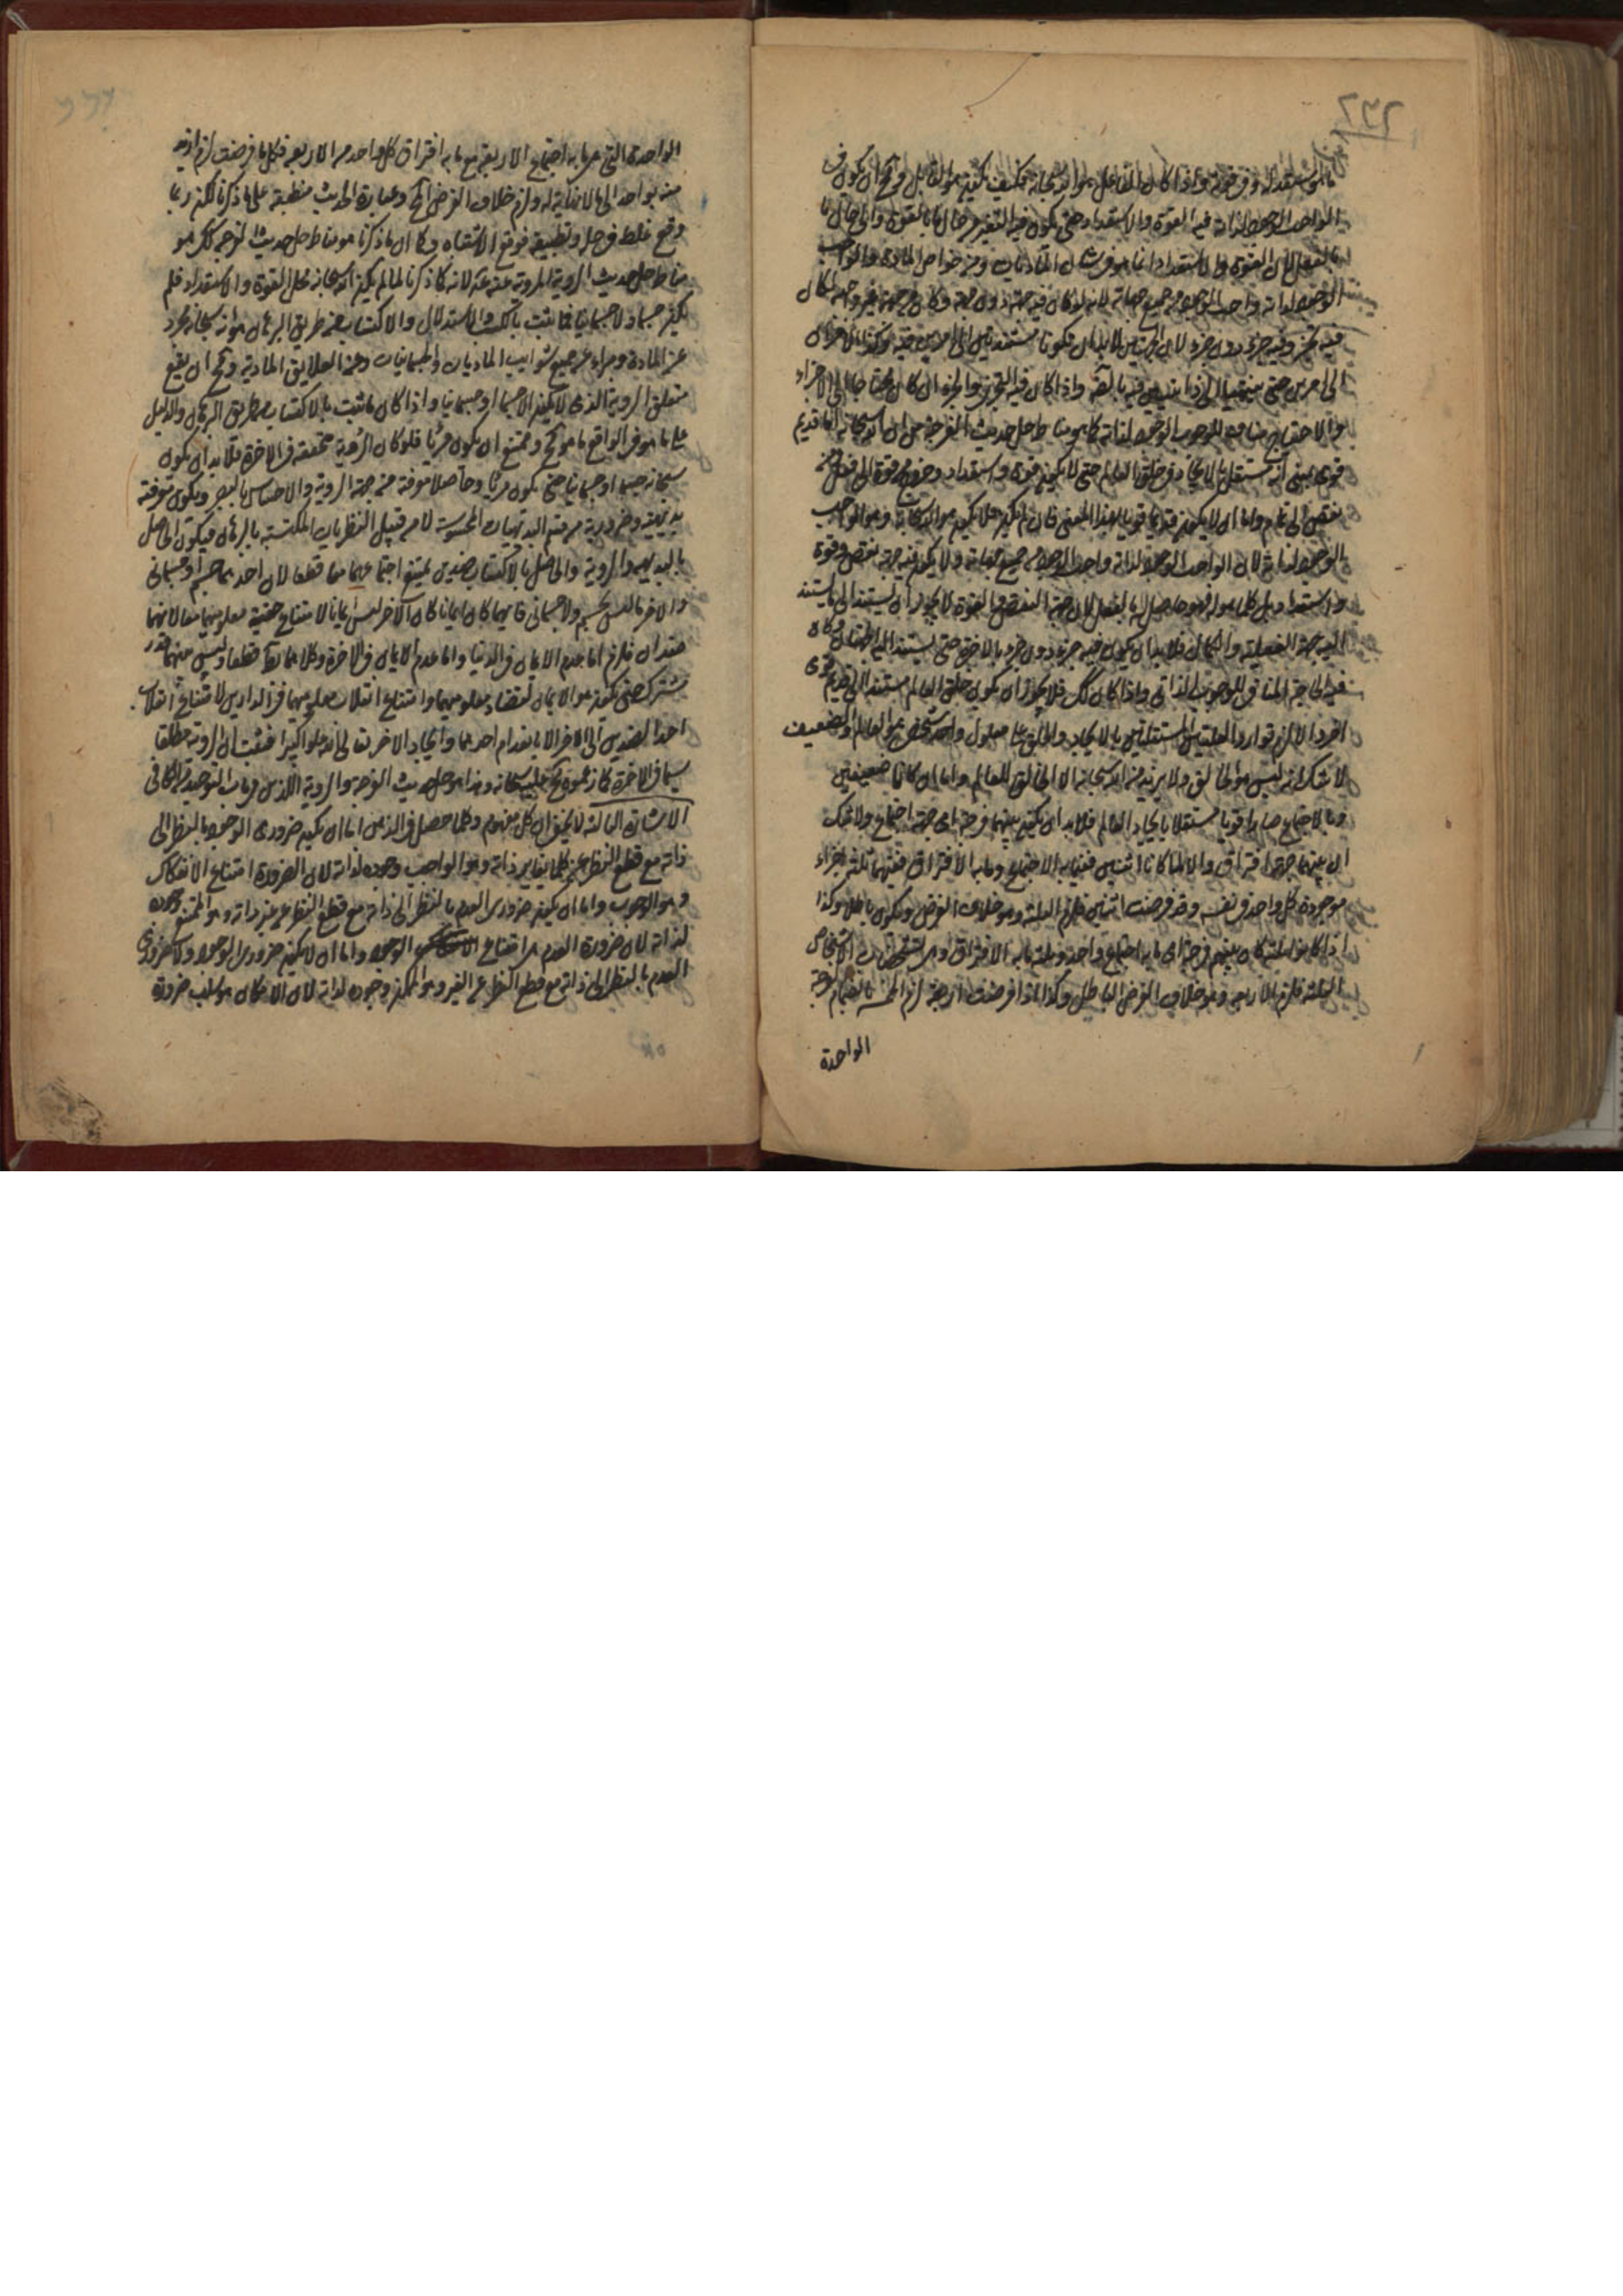 الواجب الوجود لذاته فيه القوة والاستعداد حتى يكون فيه التغير من حال ما بالقوة والى حال ما
بالفعل لان القوة والاستعداد انما هو من شأن الماديات ومن خواص المادة والواجب
الوجود لذاته واجب الوجود من جميع جهاته لانه لو كان فيه جهة دون جهة وكان من جهة غير وجهة لكان
فيه تجز وفيه جزء دون جزء لان الجهتين لابد ان تكونا مستندتين الى امرين فيه
الى امرين حتى ينتهيا الى ذاتيتين فيه واذا كان فيه التجزي والجزء ان كان محتاجا الى الاجزاء
والاحتياج مناف للوجوب الوجود لذاته كما هو مناط حل حديث الفرجة من ان الله سبحانه اما قديم
قوي بمعنى انه مستقل بالايجاد في خلق العالم حتى لا يكون فيه قوة واستعداد وخروج من قوة الى فعل ومن
نقص الى تمام واما ان لا يكون قديما قويا بهذا المعنى فان لم يكن
بالوجود لذاته لان الواجب الوجود لذاته واجب الوجود من جميع جهاته ولا يكون فيه جهة نقص وقوة
واستعداد بل كلما هو له فهو حاصل له بالفعل لان جهة النقص والقوة لا يجوز ان يستند الى ما يستند
اليه جهة الفعلية والكمال فلابد ان يكون فيه جزء دون جزء بالاخرة حتى يستند اليه
فيه الحاجة المنافي للوجوب الذاتي واذا كان كك فلا يجوز ان يكون خلق العالم مستند الى قديم قوى
اخر والا لزم توارد العلتين المستقلتين بالايجاد والخلق على معلول واحد شخصي هو العالم والضعيف
لا شك انه ليس هو الخالق ولا يريد من الله سبحانه الا الخالق للعالم واما ان كانا ضعيفين
وبالاجتماع صارا قويا مستقلا بايجاد العالم فلابد ان يكون بينهما فرجة اى جهة اجتماع ولا شك
ان بينهما جهة افتراق والا لما كانا اثنين ففيهما به الاجتماع وما به الافتراق ففيهما ثلثة اجزاء
موجودة كل واحد في نفسه وقد فرضت اثنين فلزم الثلثة وهو خلاف الفرض ويكون باطلا وكذا
اذا كانوا ثلثة كان بينهم فرجة اى ما به اجتماع واحد وثلثة ما به الافتراق وهى تشخصات الاشخاص
الثلثة فلزم الاربعة وهو خلاف الفرض الباطل وكذا اذا فرضت اربعة لزم الخمسة بانضمام الفرجة
الواحدة
الواحدة التى هى ما به اجتماع الاربعة مع ما به افتراق كل واحد من الاربعة فكلما فرضت لزم ازيد
منه بواحد الى ما لا نهاية له ولزم خلاف الفرض المح وعبارة الحديث منطبقة على ما ذكرنا لكن ربما
وقع غلط في حل وتطبيقه فوقع الاشتباه وكما ان ما ذكرنا هو مناط حل حديث الفرجة كك هو
مناط حل حديث الروية المروية عنه لانه كما ذكرنا لما لم يكن الله سبحانه محل القوة والاستعداد فلم
يكن جسما ولا جسمانيا مما يثبت بالكسب والاستدلال والاكتساب من طريق البرهان هو انه سبحانه مجرد
عن المادة ومبراء عن جميع شوايب الماديات والجسمانيات وعن العلايق المادية ومح ان يقع
متعلق الروية الذى لا يكون الا جسما او جسمانيا واذا كان ما ثبت بالاكتساب من طريق البرهان والدليل
على ما هو في الواقع ما هو مح وممتنع ان يكون مرئيا فلو كان الرؤية متحققة في الاخرة فلابد ان يكون
سبحانه جسما او جسمانيا حتى يكون مرئيا وحاصلا معرفته من جهة الروية والاحساس بالبصر ويكون معرفته
بديهية وضرورية من قسم البديهيات المحسوسة لا من قبيل النظريات المكتسبة بالبرهان فيكون الحاصل
بالبديهة والروية والحاصل بالاكتساب ضدين يمتنع اجتماعهما معا قطعا لان احدهما جسم او جسمانى
والاخر ما ليس بجسم ولا جسمانى فايهما كان ايمانا كان الاخر ليس ايمانا لامتناع حقية معلوميهما معا لانهما
ضدان فلزم اما عدم الايمان في الدنيا واما عدم الايمان في الاخرة وكلاهما بط قطعا وليس بينهما قدر
مشترك حتى يكون هو الايمان لتضاد معلوميهما وامتناع انقلاب معلوميهما في الدارين لامتناع انقلاب
احد الضدين الى الاخر الا بانعدام احدهما وايجاد الاخر تعالى الله علوا كبيرا فثبت ان الروية مطلقا
سيما في الاخرة كما زعموه مح عليه سبحانه وهذا هو حل حديث الفرجة والروية اللذين في باب التوحيد من الكافى
الاشارة الثالثة لا يخفى ان كل مفهوم وكلما حصل في الذهن اما ان يكون ضرورى الوجود بالنظر الى
ذاته مع قطع النظر عن كلما يغاير ذاته وهو الواجب وجوده لذاته لان الضرورة امتناع الانفكاك
وهو الوجوب واما ان يكون ضرورى العدم بالنظر الى ذاته مع قطع النظر عن غير ذاته وهو الممتنع وجوده
لذاته لان ضرورة العدم هى امتناع الوجود واما ان لا يكون ضرورى الوجود ولا ضرورى
العدم بالنظر الى ذاته مع قطع النظر عن الغير وهو الممكن وجوده لذاته لان الامكان هو سلب ضرورة